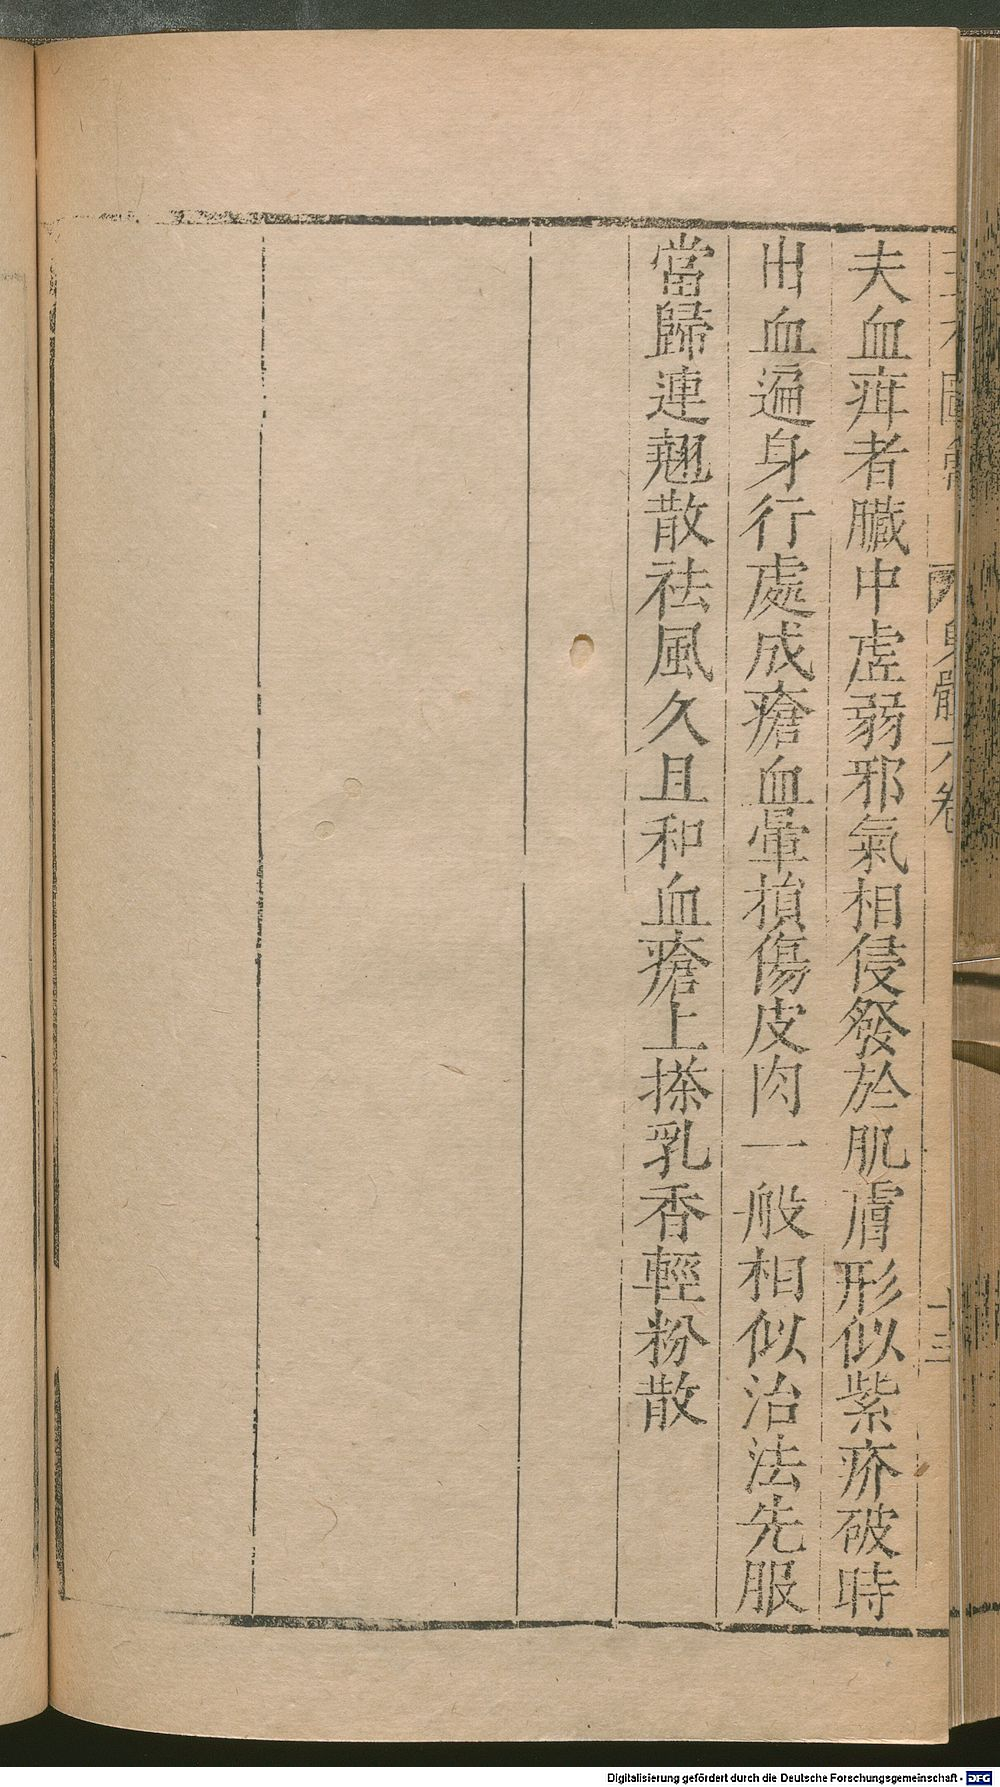 夫血疳者臟中虛弱邪氣相侵發於肌膚形似紫疥破時
出血遍身行處成瘡血暈損傷皮肉一般相似治法先服
當歸連翹散祛風久且和血瘡上搽乳香輕粉散
身體六卷
十三
Digitalisierung gefördert durch die Deutsche Forschungsgemeinschaft - DFG